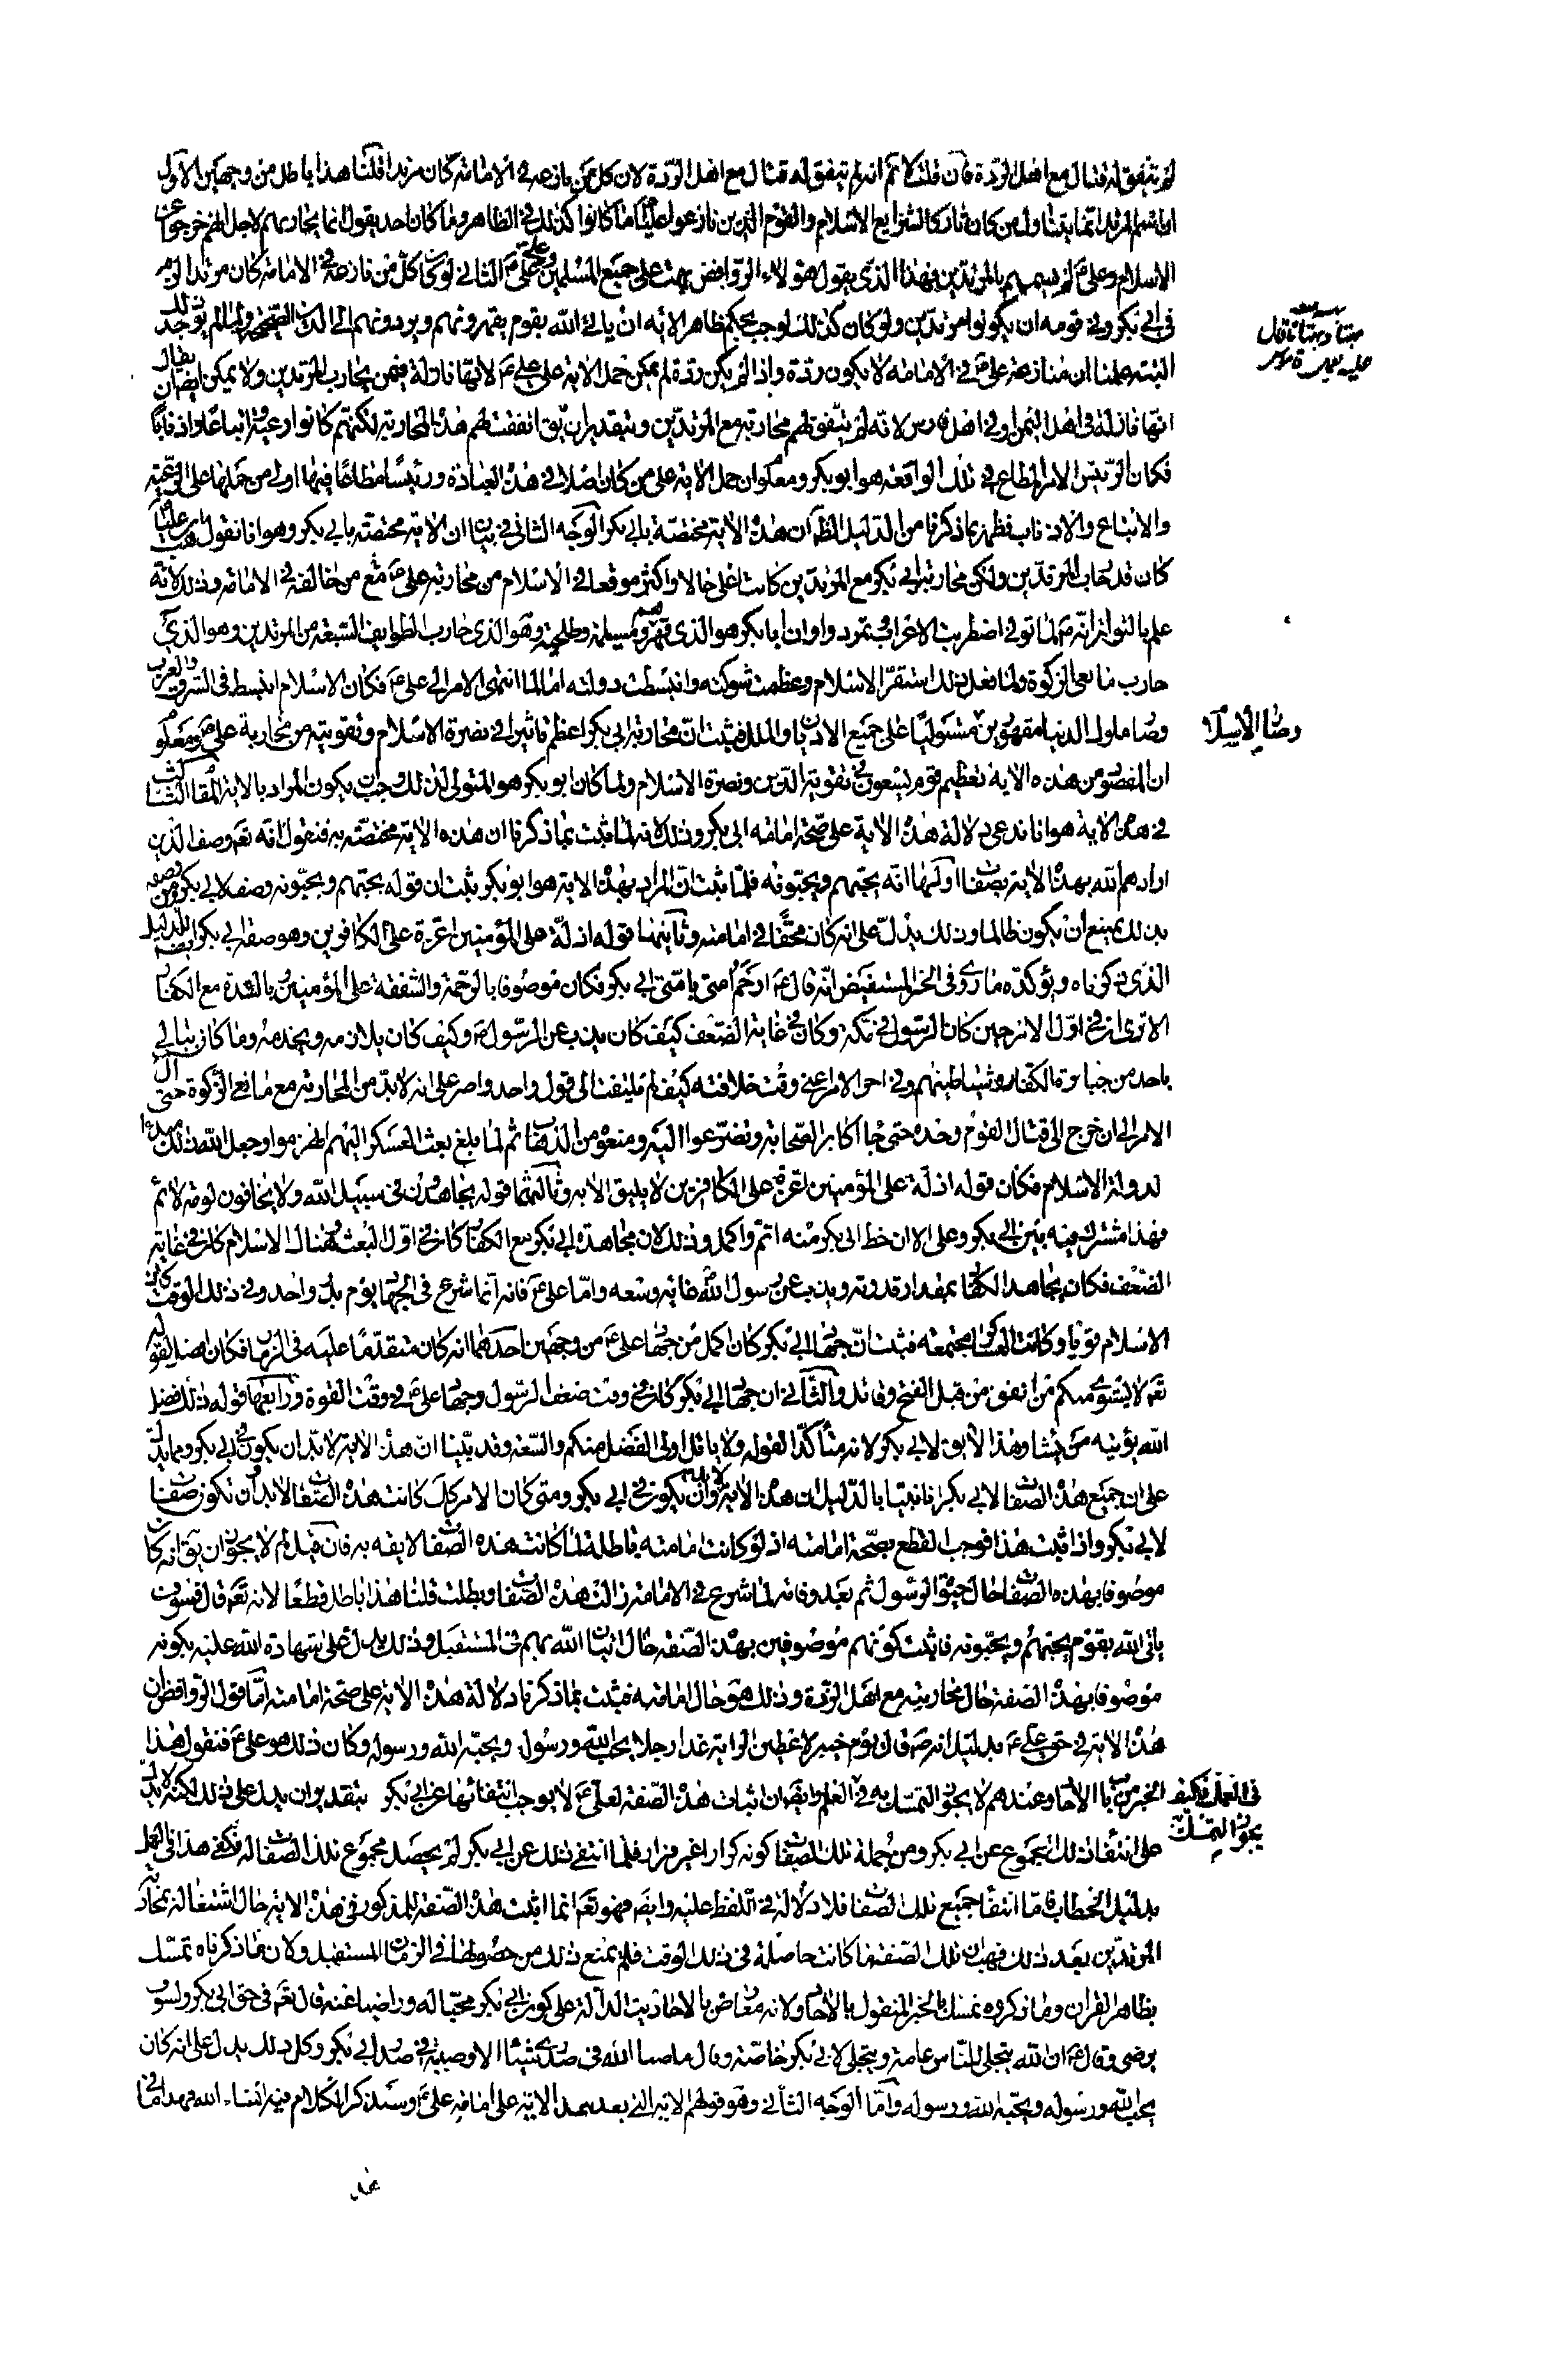 لم يتفق له قتال مع اهل الردة فان قلت لا نم انه لم يتفق له قتال مع اهل الردة لان كل من نازعه فى الامامة كان مرتدا قلنا هذا باطل من وجهين الاول
ان اسم المرتد انما يتناول من كان تاركا لشرايع الاسلام والقوم الذين نازعوا عليا ما كانوا كذلك فى الظاهر وما كان احد يقول انما يحاربهم لاجل انهم خرجوا عن
الاسلام وعلى ع لم يسمهم بالمرتدين فهذا الذى يقول هؤلاء الروافض بهت على جميع المسلمين وعلى على ع الثانى لو كان كل من نازعه فى الامامة كان مرتدا لزم
فى ابى بكر وفى قومه ان يكونوا مرتدين ولو كان كذلك لوجب بحكم ظاهر الاية ان ياتى الله بقوم يقهرونهم ويردونهم الى الدين الصحيح ولما لم يوجد ذلك
البتة علمنا ان منازعة على ع فى الامامة لا يكون ردة واذا لم يكن ردة لم يمكن حمل الاية على على ع لانها نازلة فيمن يحارب المرتدين ولا يمكن ايضا ان يقال
انها نازلة فى اهل اليمن او فى اهل فارس لانه لم يتفق لهم محاربة مع المرتدين وبتقدير ان يق اتفقت لهم هذه المحاربة لكنهم كانوا رعية واتباعا واذنابا
فكان الرئيس الامر المطاع فى تلك الواقعة هو ابو بكر ومعلوم ان حمل الاية على من كان اصلا فى هذه العبادة ورئيسا مطاعا فيها اولى من حملها على الرعية
والاتباع والاذناب فظهر بما ذكرنا من الدليل الظ ان هذه الاية مختصة بابى بكر الوجه الثانى فى بيان ان الاية مختصة بابى بكر وهو انا نقول هب ان عليا
كان قد حارب المرتدين ولكن محاربة ابى بكر مع المرتدين كانت اعلى حالا واكثر موقعا فى الاسلام من محاربة على ع مع من خالفه فى الامامة وذلك لانه
علم بالتواتر انه ص لما توفى اضطربت الاعراب وتمردوا وان ابا بكر هو الذى قهرهم ومسيلمة وطليحة وهو الذى حارب الطوايف السبعة من المرتدين وهو الذى
حارب مانعى الزكوة ولما فعل ذلك استقر الاسلام وعظمت شوكته وانبسطت دولته اما لما انتهى الامر الى على ع فكان الاسلام انبسط فى الشرق والغرب
وصار ملوك الدنيا مقهورين مستوليا على جميع الاديان والملل فثبت ان محاربة ابى بكر اعظم تاثيرا فى نصرة الاسلام وتقويته من محاربة على ع ومعلوم
ان المقصود من هذه الاية تعظيم قوم يسعون فى تقوية الدين ونصرة الاسلام ولما كان ابو بكر هو المتولى لذلك وجب ان يكون المراد بالاية المقام الثالث
فى هذه الاية هو انا ندعى دلالة هذه الاية على صحة امامة ابى بكر وذلك لانه لما ثبت بما ذكرنا ان هذه الاية مختصة به فنقول انه تعم وصف الذين
ارادهم الله بهذه الاية بصفات اولها انه يحبهم ويحبونه فلما ثبت ان المراد بهذه الاية هو ابو بكر ثبت ان قوله يحبهم ويحبونه وصف لابى بكر ومن وصفه
بذلك يمتنع ان يكون ظالما وذلك يدل على انه كان محقا فى امامته وثانيها قوله اذلة على المؤمنين اعزة على الكافرين وهو صفة ابى بكر ايض للدليل
الذى ذكرناه ويؤكده ما روى فى الخبر المستفيض انه قال ع ارحم امتى بامتى ابى بكر فكان موصوفا بالرحمة والشفقة على المؤمنين بالشدة مع الكفار
الا ترى ان فى اول الامر حين كان الرسول فى مكة وكان فى غاية الضعف كيف كان يذب عن الرسول ص وكيف كان يلازمه ويخدمه وما كان يبالى
باحد من جبابرة الكفار وشياطينهم وفى اخر الامر اعنى وقت خلافته كيف لم يلتفت الى قول واحد واصر على انه لابد من المحاربة مع مانعى الزكوة حتى ال
الامر الى ان خرج الى قتال القوم وحده حتى جا اكابر الصحابة وتضرعوا اليه ومنعوه من الذهاب ثم لما بلغ بعث العسكر اليهم انهزموا وجعل الله ذلك مبدءا
لدولة الاسلام فكان قوله اذلة على المؤمنين اعزة على الكافرين لا يليق الا به وثالثها قوله يجاهدون فى سبيل الله ولا يخافون لومة لائم
فهذا مشترك فيه بين ابى بكر وعلى الا ان حظ ابى بكر منه اتم واكمل وذلك لان مجاهدة ابى بكر مع الكفار كان فى اول البعث وهناك الاسلام كان فى غاية
الضعف فكان يجاهد الكفار بمقدار قدرته ويذب عن رسول الله غاية وسعه واما على ع فانه انما شرع فى الجهاد يوم بدر واحد وفى ذلك الوقت كان
الاسلام قويا وكانت العساكر مجتمعة فثبت ان جهاد ابى بكر كان اكمل من جهاد على ع من وجهين احدهما انه كان متقدما عليه فى الزمان فكان افضل لقوله
تعم لا يستوى منكم من انفق من قبل الفتح وقاتل والثانى ان جهاد ابى بكر كان فى وقت ضعف الرسول وجهاد على ع فى وقت القوة ورابعها قوله ذلك فضل
الله يؤتيه من يشاء وهذا لايق لابى بكر لانه متأكد القوله ولا ياتل اولى الفضل منكم والسعة وقد بينا ان هذه الاية لابد ان يكون فى ابى بكر ومما يدل
على ان جميع هذه الصفات لابى بكر انا بينا بالدليل ان هذه الاية لابد وان يكون فى ابى بكر ومتى كان الامر كك كانت هذه الصفات لابد ان تكون صفات
لابى بكر واذا ثبت هذا فوجب القطع بصحة امامته اذ لو كانت امامته باطلة لما كانت هذه الصفات لايقه به فان قيل لم لا يجوز ان يق انه كان
موصوفا بهذه الصفات حال حيوة الرسول ثم بعد وفاته لما شرع فى الامامة زالت هذه الصفات وبطلت قلنا هذا باطل قطعا لانه تعم قال فسوف
ياتى الله بقوم يحبهم ويحبونه فاثبت كونهم موصوفين بهذه الصفة حال اتيان الله بهم فى المستقبل وذلك يدل على شهادة الله عليه بكونه
موصوفا بهذه الصفة حال محاربته مع اهل الردة وذلك هو حال امامته فثبت بما ذكرنا دلالة هذه الاية على صحة امامته اما قول الروافض ان
هذه الاية فى حق على ع بدليل انه ص قال يوم خيبر لاعطين الراية غدا رجلا يحب الله ورسوله ويحبه الله ورسوله وكان ذلك هو على ع فنقول هذا
الخبر من باب الاحاد وعندهم لا يجوز التمسك به فى العلم وايض ان اثبات هذه الصفة لعلى ع لا يوجب انتفائها عن ابى بكر بتقدير ان يدل على ذلك لكنه لا يدل
على انتفاء ذلك المجموع عن ابى بكر ومن جملة تلك الصفات كونه كرارا غير فرار فلما انتفى ذلك عن ابى بكر لم يحصل مجموع تلك الصفات له فكفى هذا فى العمل
بدليل الخطاب فاما انتفاء جميع تلك الصفات فلا دلالة فى اللفظ عليه وايض فهو تعم انما اثبت هذه الصفة للمذكور فى هذه الاية حال اشتغاله بمحاربة
المرتدين بعد ذلك فهب ان تلك الصفة ما كانت حاصلة فى ذلك الوقت فلم يمنع ذلك من حصولها فى الزمان المستقبل ولان ما ذكرناه تمسك
بظاهر القران وما ذكروه تمسك بالخبر المنقول بالاحاد ولانه معارض بالاحاديث الدالة على كون ابى بكر محبا لله وراضيا عنه قال تعم فى حق ابى بكر ولسوف
يرضى وقال ع ان الله يتجلى للناس عامة ويتجلى لابى بكر خاصة وقال ما صب الله فى صدرى شيئا الا وصببته فى صدر ابى بكر وكل ذلك يدل على انه كان
يحب الله ورسوله ويحبه الله ورسوله واما الوجه الثانى وهو قولهم الاية التى بعد هذه الاية على امامة على ع وسنذكر الكلام فيه انشاء الله فهذا ما فى
بهته بهتا وبهتانا قال
عليه
وصار الاسلام
فى العمل فكيف
يجوز التمسك